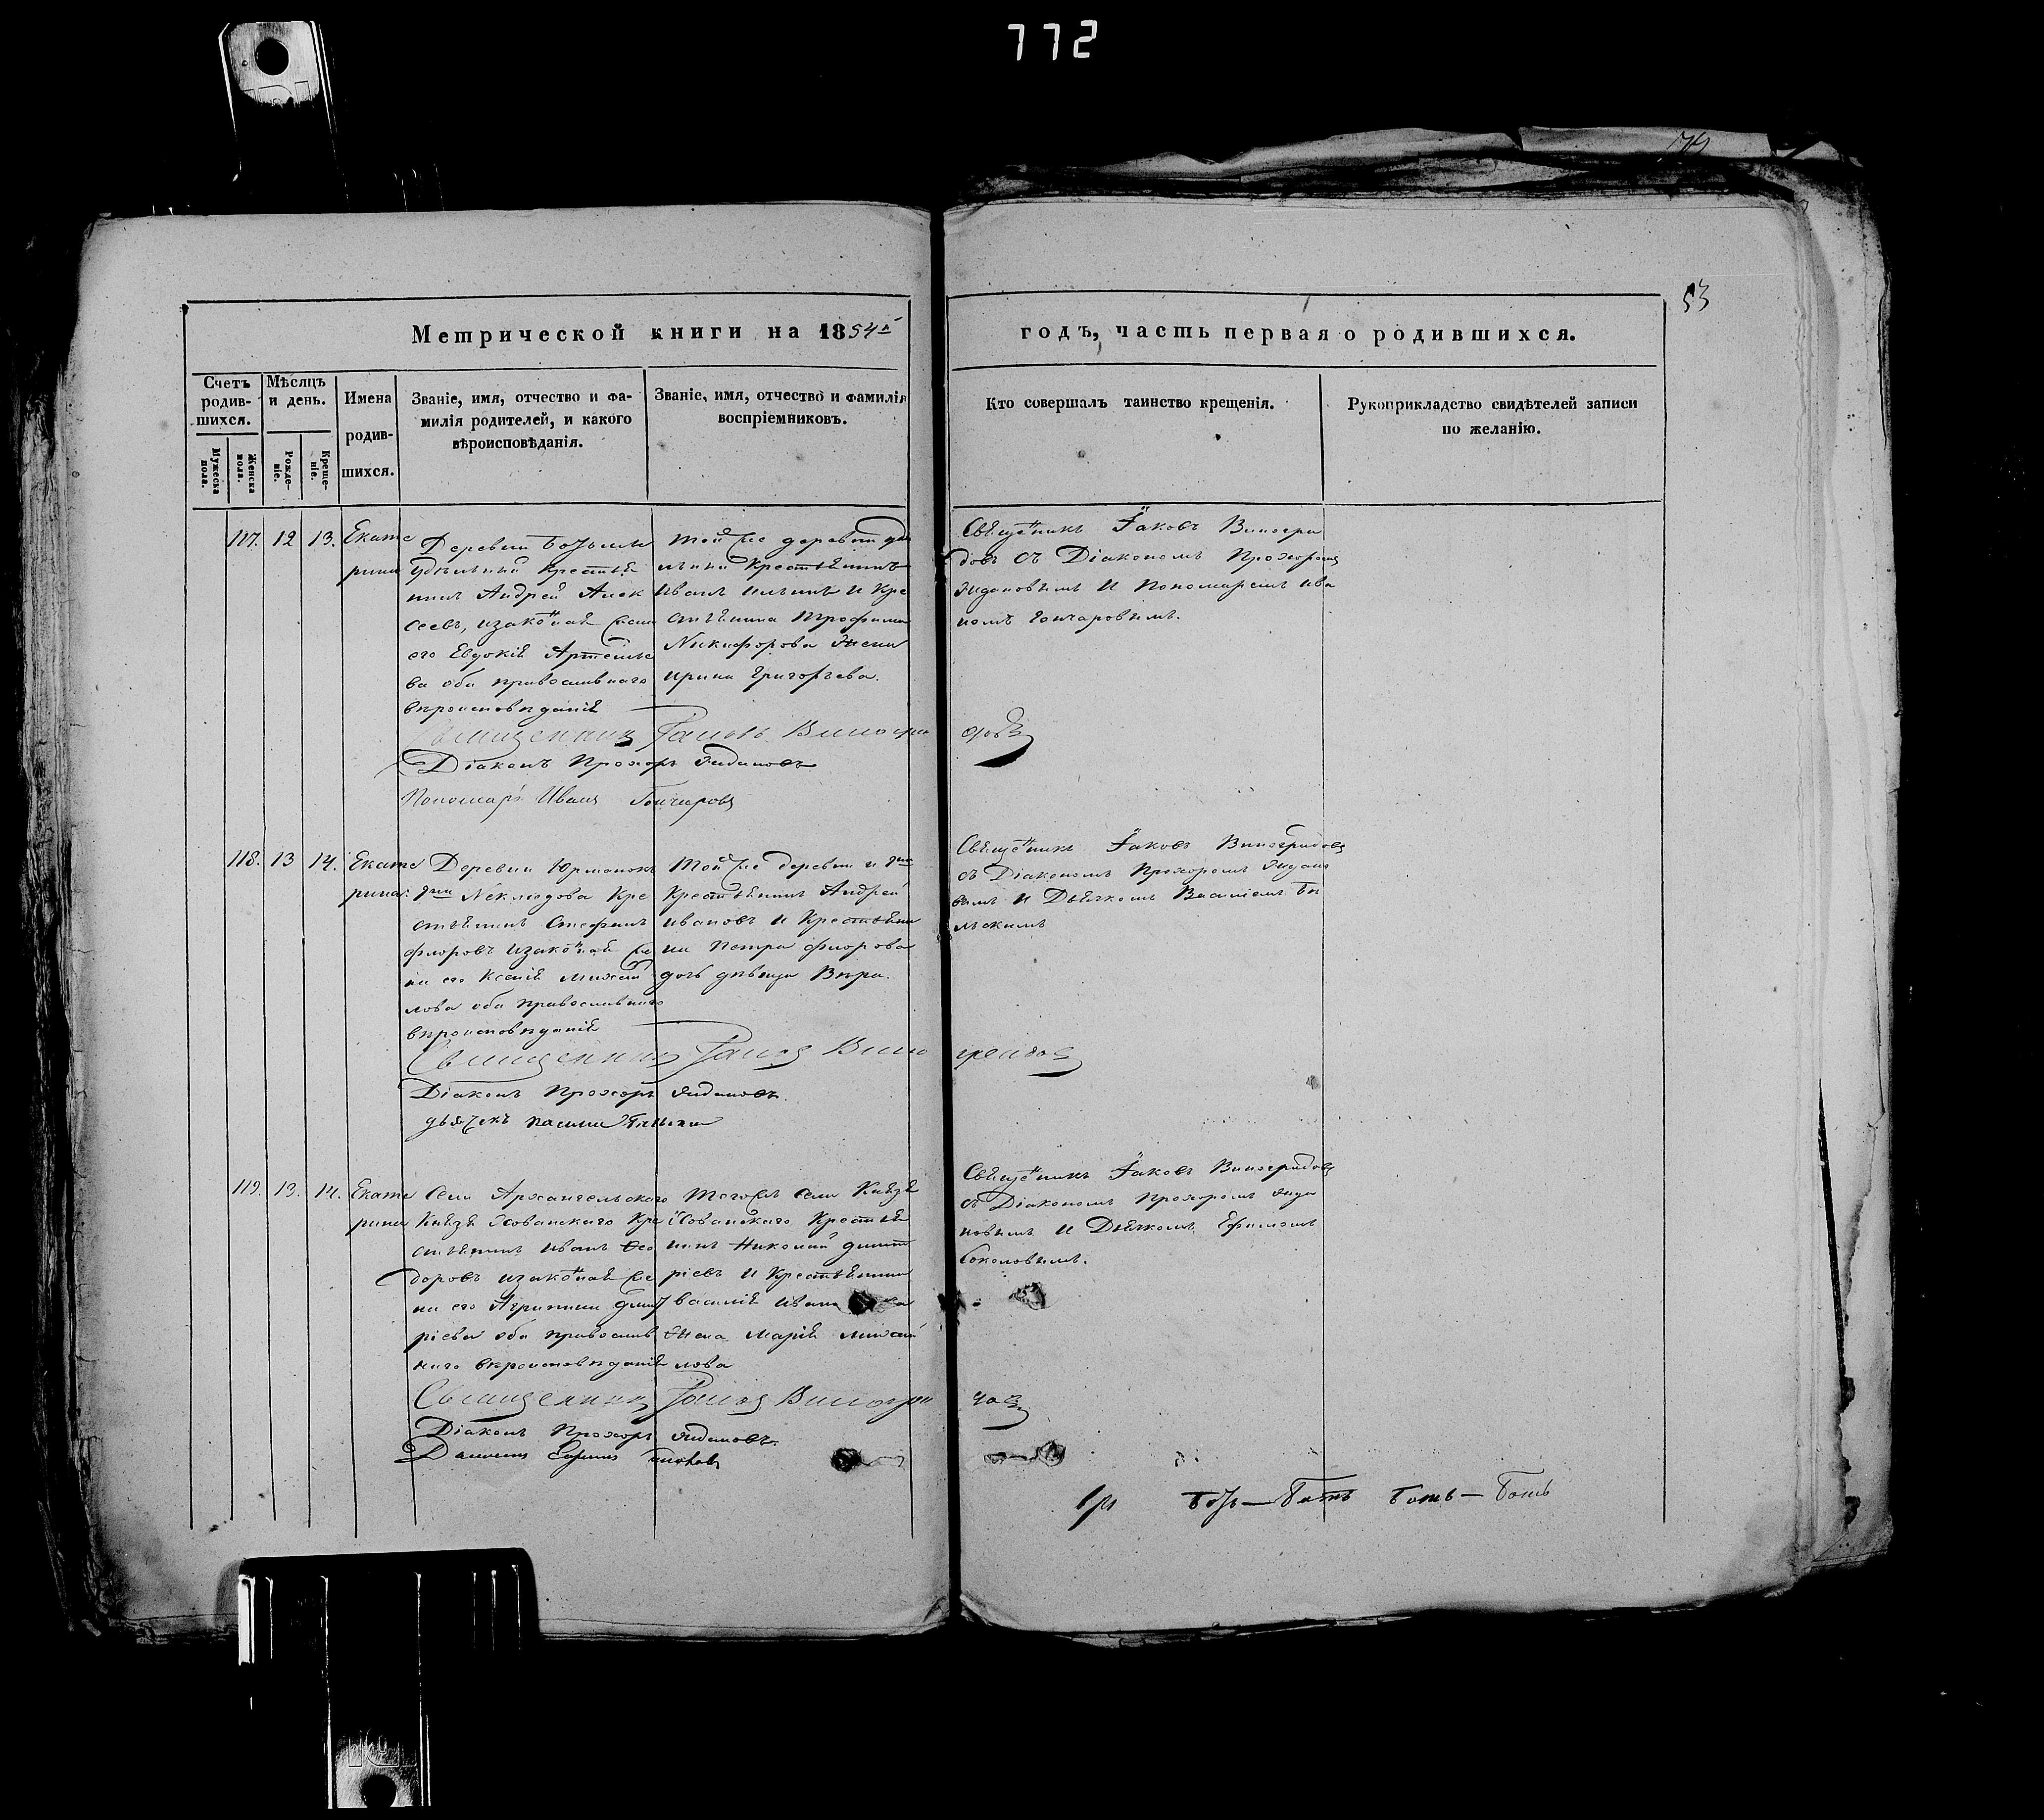 772
53
Метрической книги на 1854й
годъ, часть первая о родившихся.
Счетъ родив-шихся.
Мѣсяцъ и день.
Имена родив-шихся.
Званіе, имя, отчество и фа-
милія родителей, и какого
вѣроисповѣданія.
Званіе, имя, отчество и фамилія
воспріемниковъ.
Кто совершалъ таинство крещенія.
Рукоприкладство свидѣтелей записи
по желанію.
Мужеска пола.
Женска пола.
Рожде-ніе.
Креще-ніе.
117. 12 13. Екате
рина
Деревни
удѣльный Крестья
нинъ Андрей Алек
сеевъ, изаконная жена
его Евдокія Артемье
ва оба православнаго
вѣроисповѣданія
Той же деревни удѣ
льный Крестьянинъ
Иванъ Ильинъ и Кре
стьянина Трофима
Никифорова жена
Ирина Григорьева.
Священникъ Іаковъ Виногра
довъ съ Діакономъ Прохоромъ
и Пономаремъ Ива
номъ Гончаровымъ.
Священникъ Іаковъ Виногра
довъ
Діаконъ Прохоръ
Пономарь Иванъ Гончаровъ
118. 13 14. Екате
рина
Деревни Юрманокъ
Неклюдова Кре
стьянинъ Стефанъ
Флоровъ изаконная же
на его Ксенія Михай
лова оба православнаго
вѣроисповѣданія
Той же деревни и
Крестьянинъ Андрей
Ивановъ и Крестьяни
на Петра Флорова
дочь дѣвица Вѣра.
Священникъ Іаковъ Виноградовъ
съ Діакономъ Прохоромъ
вымъ и Дьячкомъ Василіемъ Бѣ
льскимъ
Священникъ Іаковъ Вино
градовъ
Діаконъ Прохоръ
119. 13. 14. Екате
рина
Села Архангельскаго
Князя Хованскаго Кре
стьянинъ Иванъ Ѳео
доровъ изаконная же
на его Агрипина Димит
ріева оба православ
наго вѣроисповѣданія
Тогоже села Князя
Хованскаго Крестья
нинъ Николай Димит
ріевъ и Крестьянина
Василія
жена Марія Михай
лова
Священникъ Іаковъ Виноградовъ
съ Діакономъ Прохоромъ
новымъ и Дьячкомъ Ефимомъ
Соколовымъ.
Священникъ Іаковъ Виногра
довъ
Діаконъ Прохоръ